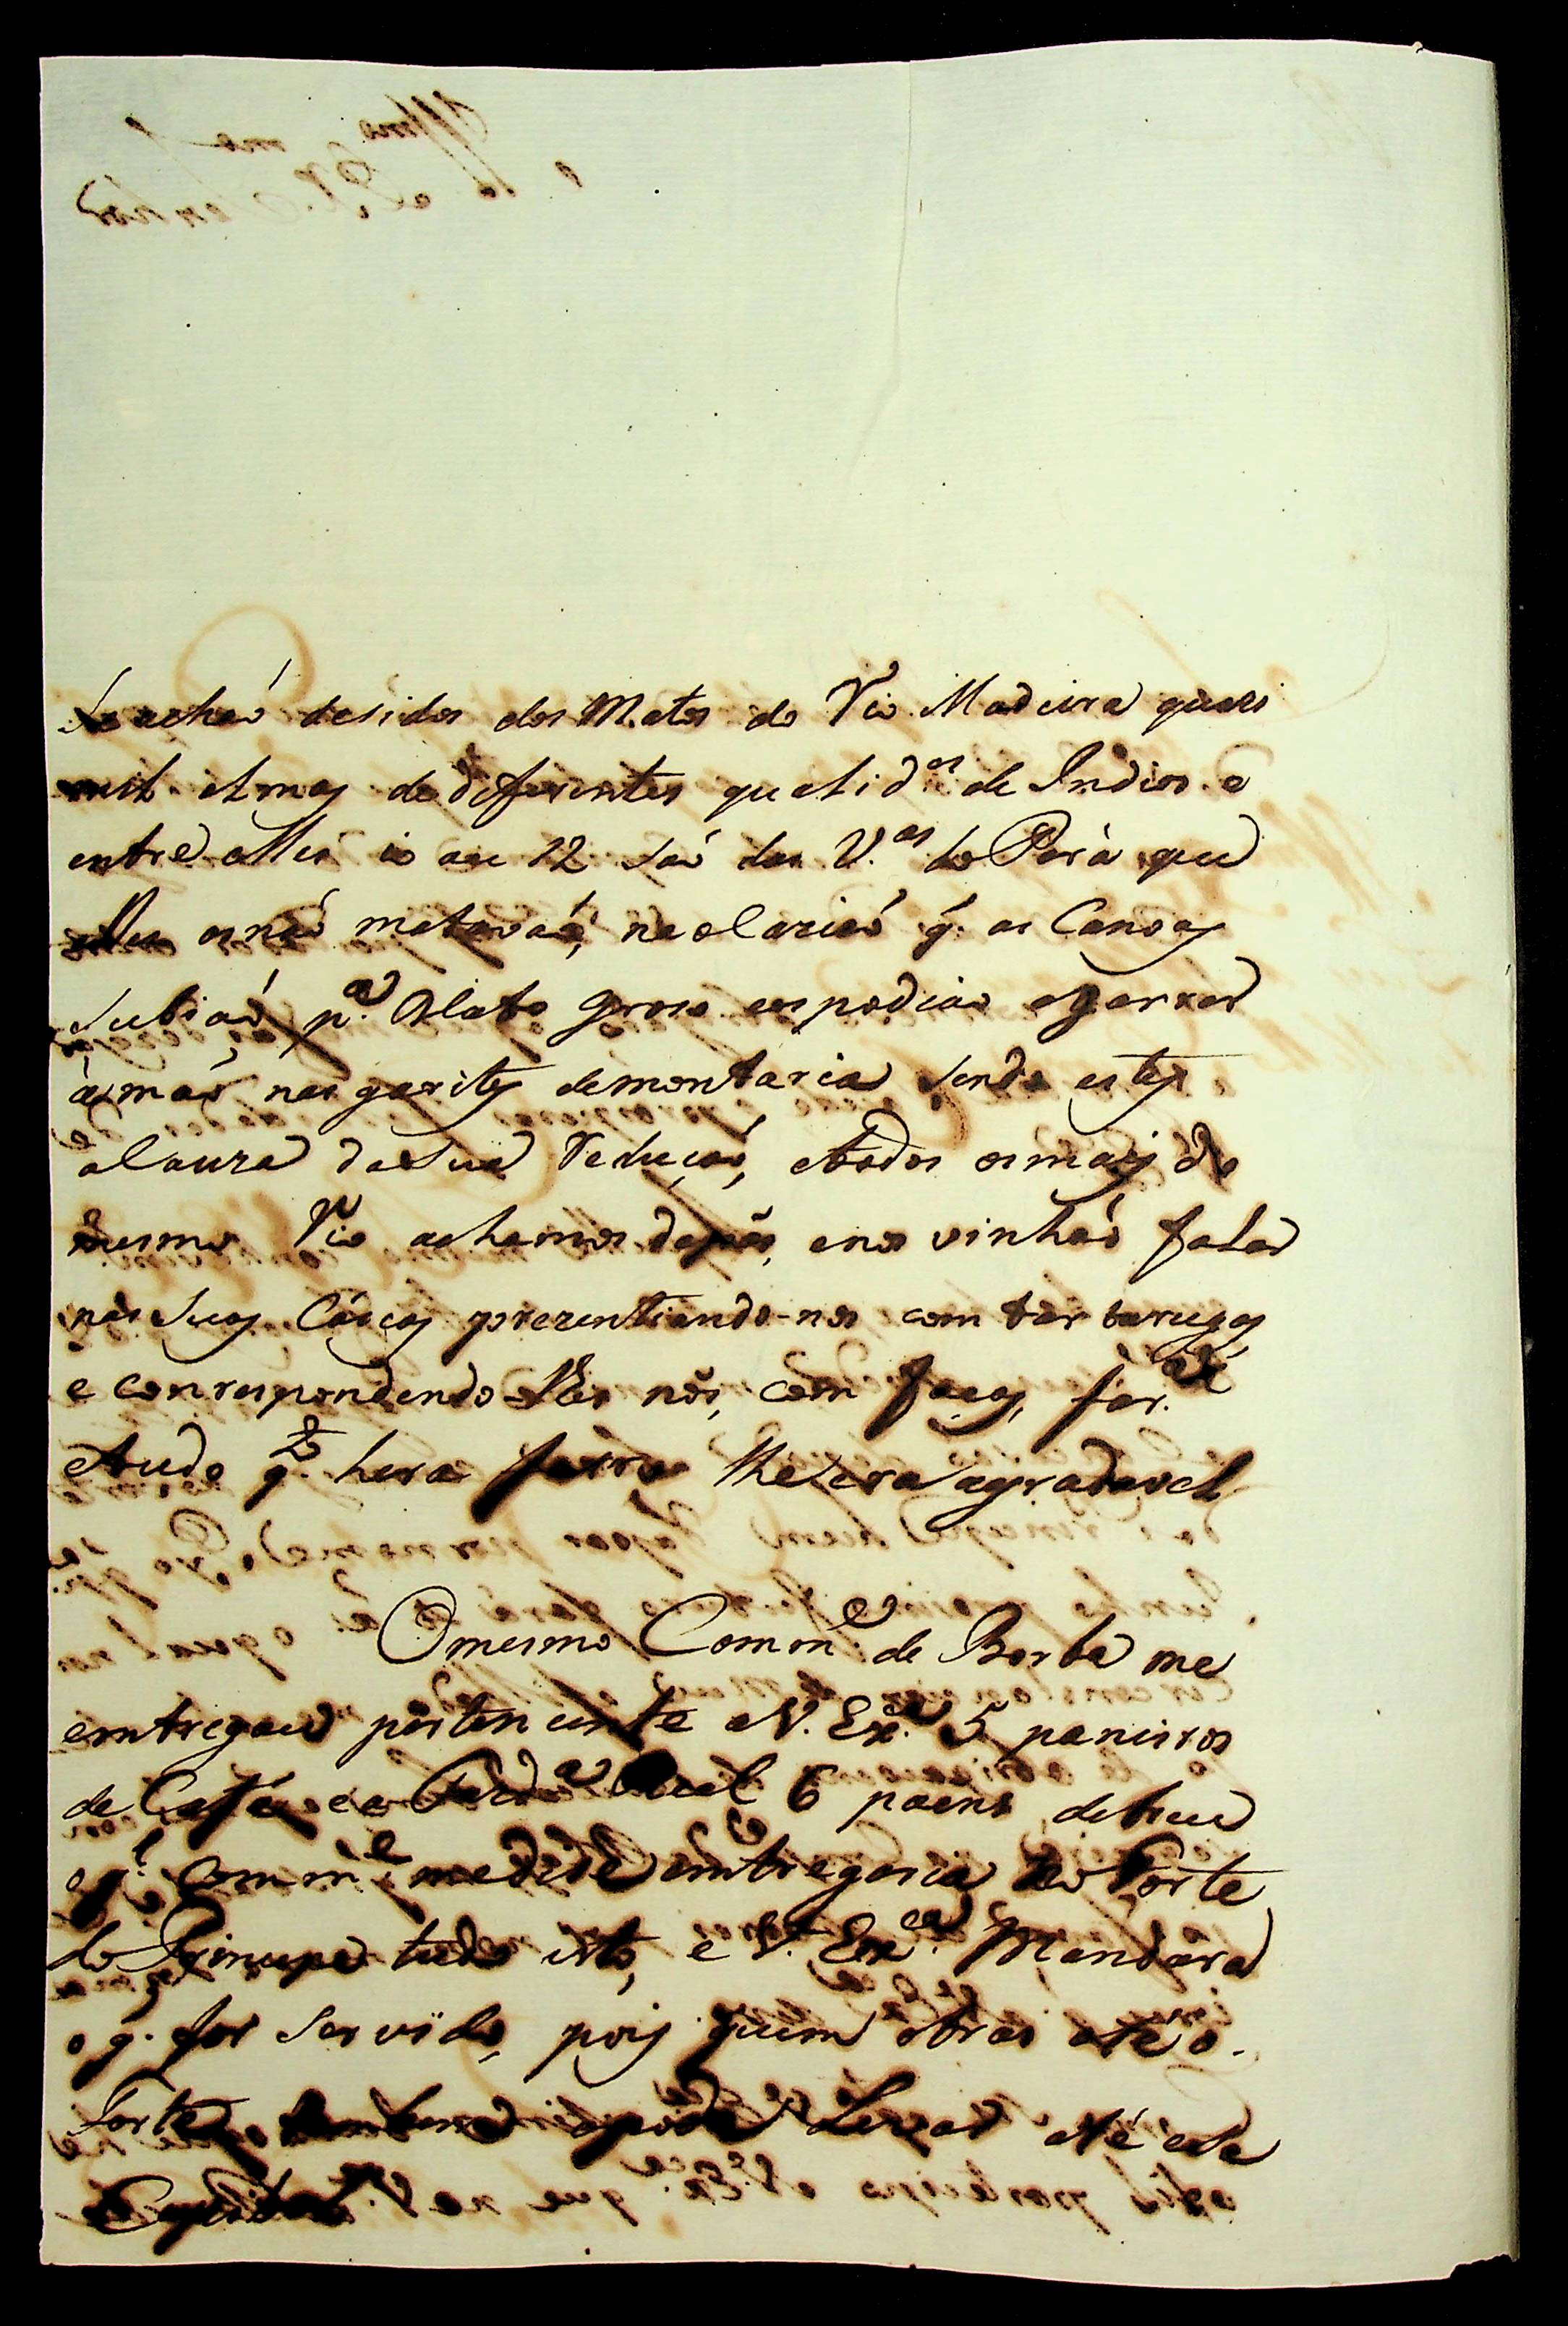 Se achaõ desidos dos Matos do Rio Madeira quasi
mil almas de differentes qualid.es de Indios. e
entre elles só ou 12 saõ das V.as do Pará que
elles os naõ matavaõ, na olariaõ q. as Canoas
Subiaõ p.a Mato Groso eos podiaõ agarrar
nas garites de montaria Sendo estes
a Cauza da Sua Reduçaõ, e todos os mais do
mesmo Rio achamos de pás, e nos vinhaõ falar
nas Suas Cáscas prezentiando-nos com tartarugas
e conrespondendo-lhes nós, com facas, far.a
e tudo q.to hera ferro lhe era agradavel

O mesmo Comm.e de Borba me
entregou pertencente a V. Ex.a 5 paneiros
de Café e a Fazd.a Real 6 paens de breu
o q.l Comm.e me dise entregaria no Forte
do Principe tudo isto, e V. Ex.ca Mandara
o q. for Servido, pois quem o trás até o
Forte tambem o pode Levar até esa
Capital